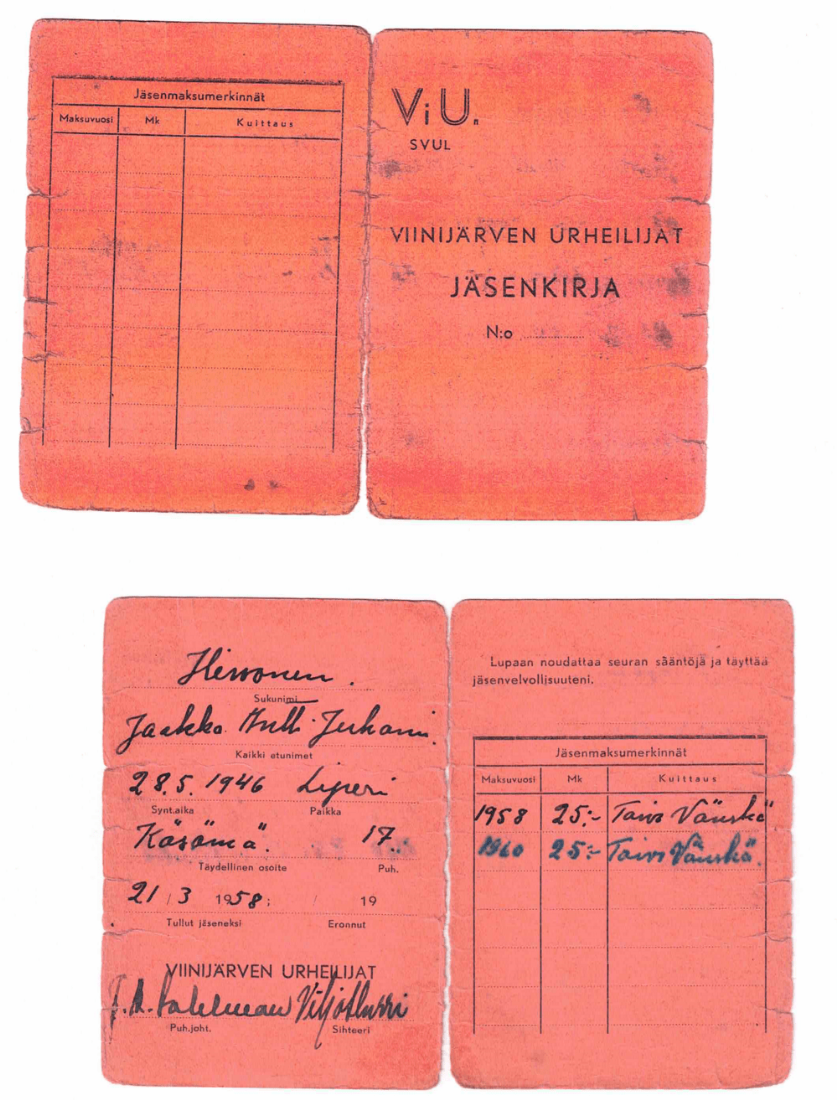 Jäsenmaksumerkinnät
Maksuvuosi Mk Kuittaus
ViU.
SVUL
VIINIJÄRVEN URHEILIJAT
JÄSENKIRJA
N:o
Hirvonen.
Sukunimi
Jaakko Antti Juhani.
Kaikki etunimet
28.5.1946 Liperi
Synt.aika Paikka
Käsämä. 17.
Täydellinen osoite Puh.
21/3 1958; / 19
Tullut jäseneksi Eronnut
VIINIJÄRVEN URHEILIJAT
Viljo Hurri
Puh.joht. Sihteeri
Lupaan noudattaa seuran sääntöjä ja täyttää
jäsenvelvollisuuteni.
Jäsenmaksumerkinnät
Maksuvuosi Mk Kuittaus
1958 25:- Toivo Vänskä
1960 25:- Toivo Vänskä.